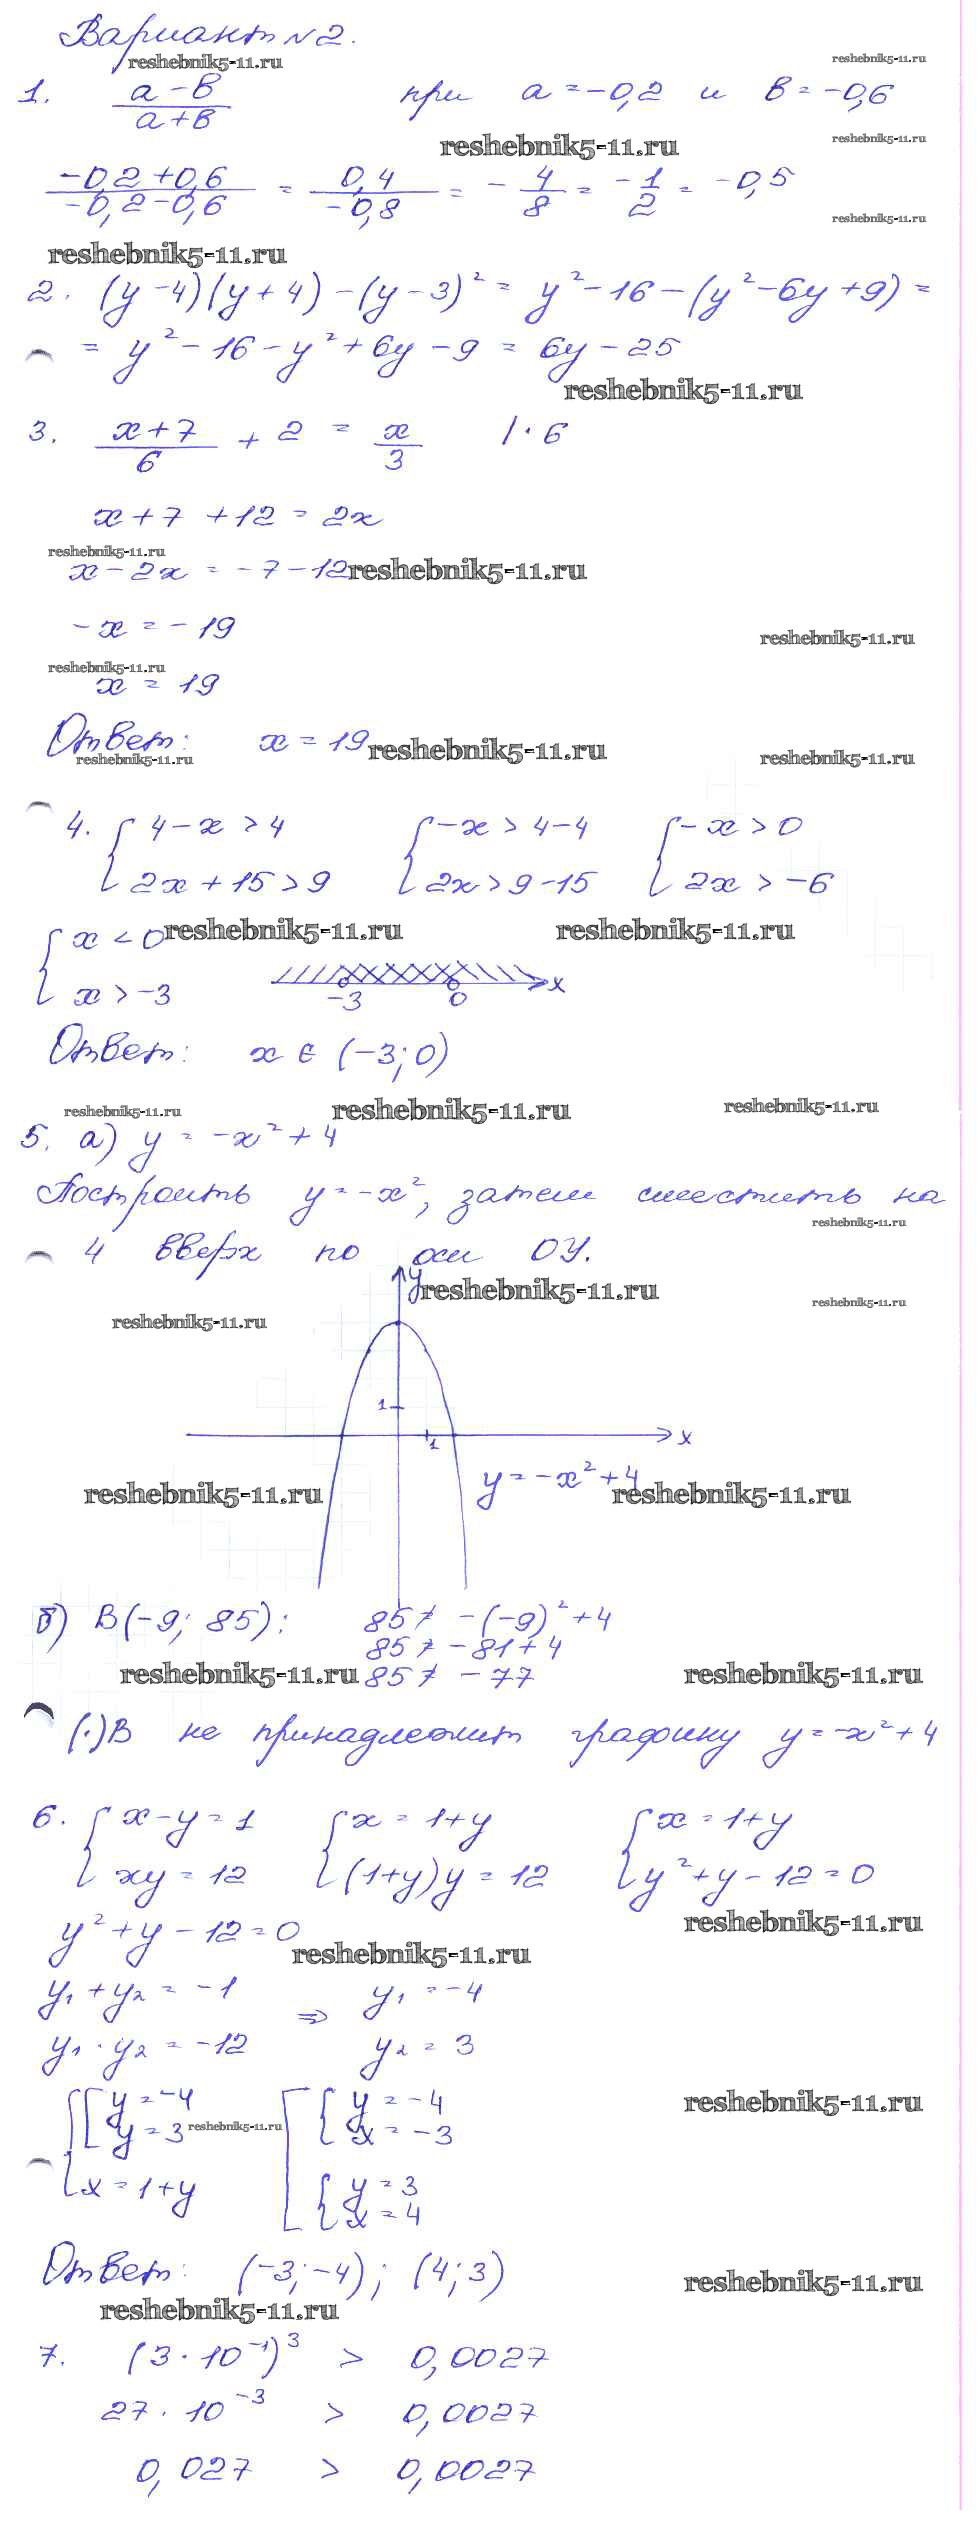 Вариант №2.
reshebnik5-11.ru reshebnik5-11.ru
1. (a-в)/(a+в) при a=-0,2 и в=-0,6
reshebnik5-11.ru reshebnik5-11.ru
(-0,2+0,6)/(-0,2-0,6) = 0,4/(-0,8) = -4/8 = -1/2 = -0,5
reshebnik5-11.ru
reshebnik5-11.ru
2. (y-4)(y+4)-(y-3)² = y²-16-(y²-6y+9) =
= y²-16-y²+6y-9 = 6y-25
reshebnik5-11.ru
3. (x+7)/6 + 2 = x/3 |·6
x+7+12=2x
reshebnik5-11.ru
x-2x=-7-12 reshebnik5-11.ru
-x=-19
reshebnik5-11.ru
reshebnik5-11.ru
x=19
Ответ: x=19 reshebnik5-11.ru
reshebnik5-11.ru reshebnik5-11.ru
4. { 4-x>4 { -x>4-4 { -x>0
2x+15>9 2x>9-15 2x>-6
{ x<0 reshebnik5-11.ru reshebnik5-11.ru
x>-3 -3 0 x
Ответ: x∈(-3;0)
reshebnik5-11.ru reshebnik5-11.ru reshebnik5-11.ru
5. а) y=-x²+4
Построить y=-x², затем сместить на
reshebnik5-11.ru
4 вверх по оси ОУ.
y reshebnik5-11.ru
reshebnik5-11.ru
reshebnik5-11.ru
1
1 x
y=-x²+4
reshebnik5-11.ru reshebnik5-11.ru
б) B(-9; 85): 85≠-(-9)²+4
85≠-81+4
reshebnik5-11.ru 85≠-77 reshebnik5-11.ru
(·)B не принадлежит графику y=-x²+4
6. { x-y=1 { x=1+y { x=1+y
xy=12 (1+y)y=12 y²+y-12=0
reshebnik5-11.ru
y²+y-12=0
reshebnik5-11.ru
y₁+y₂=-1 ⇒ y₁=-4
y₁·y₂=-12 y₂=3
{ [ y=-4 [ { y=-4 reshebnik5-11.ru
y=3 reshebnik5-11.ru x=-3
x=1+y { y=3
x=4
Ответ: (-3;-4); (4;3)
reshebnik5-11.ru
reshebnik5-11.ru
7. (3·10⁻¹)³ > 0,0027
27·10⁻³ > 0,0027
0,027 > 0,0027